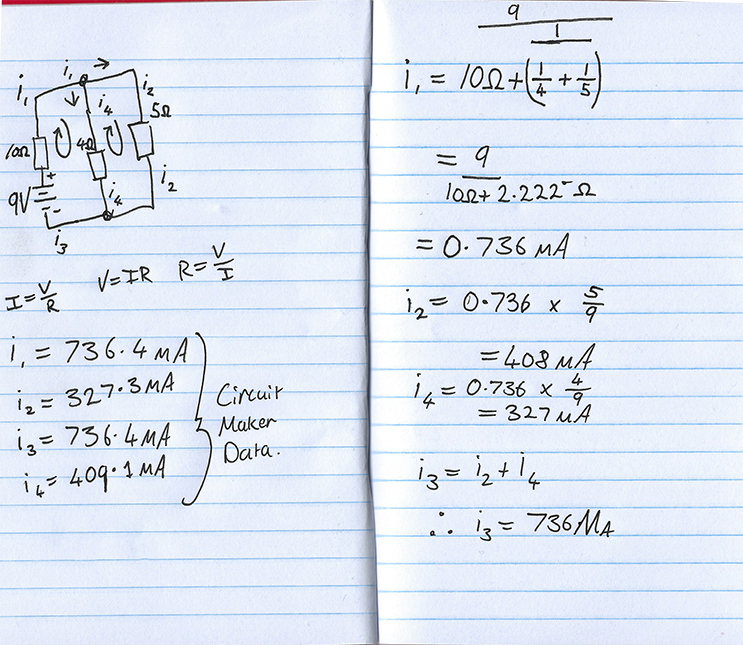 i₁ →
i₁ ↓ i₄ i₂
5Ω
10Ω 4Ω
+
9V - i₄ i₂
i₃
I = V/R V = IR R = V/I
i₁ = 736.4 mA
i₂ = 327.3 mA
i₃ = 736.4 mA
i₄ = 409.1 mA
Circuit
Maker
Data.
9
1
i₁ = 10Ω + (1/4 + 1/5)
= 9
10Ω + 2.222 Ω
= 0.736 mA
i₂ = 0.736 x 5/9
= 408 mA
i₄ = 0.736 x 4/9
= 327 mA
i₃ = i₂ + i₄
∴ i₃ = 736 MA